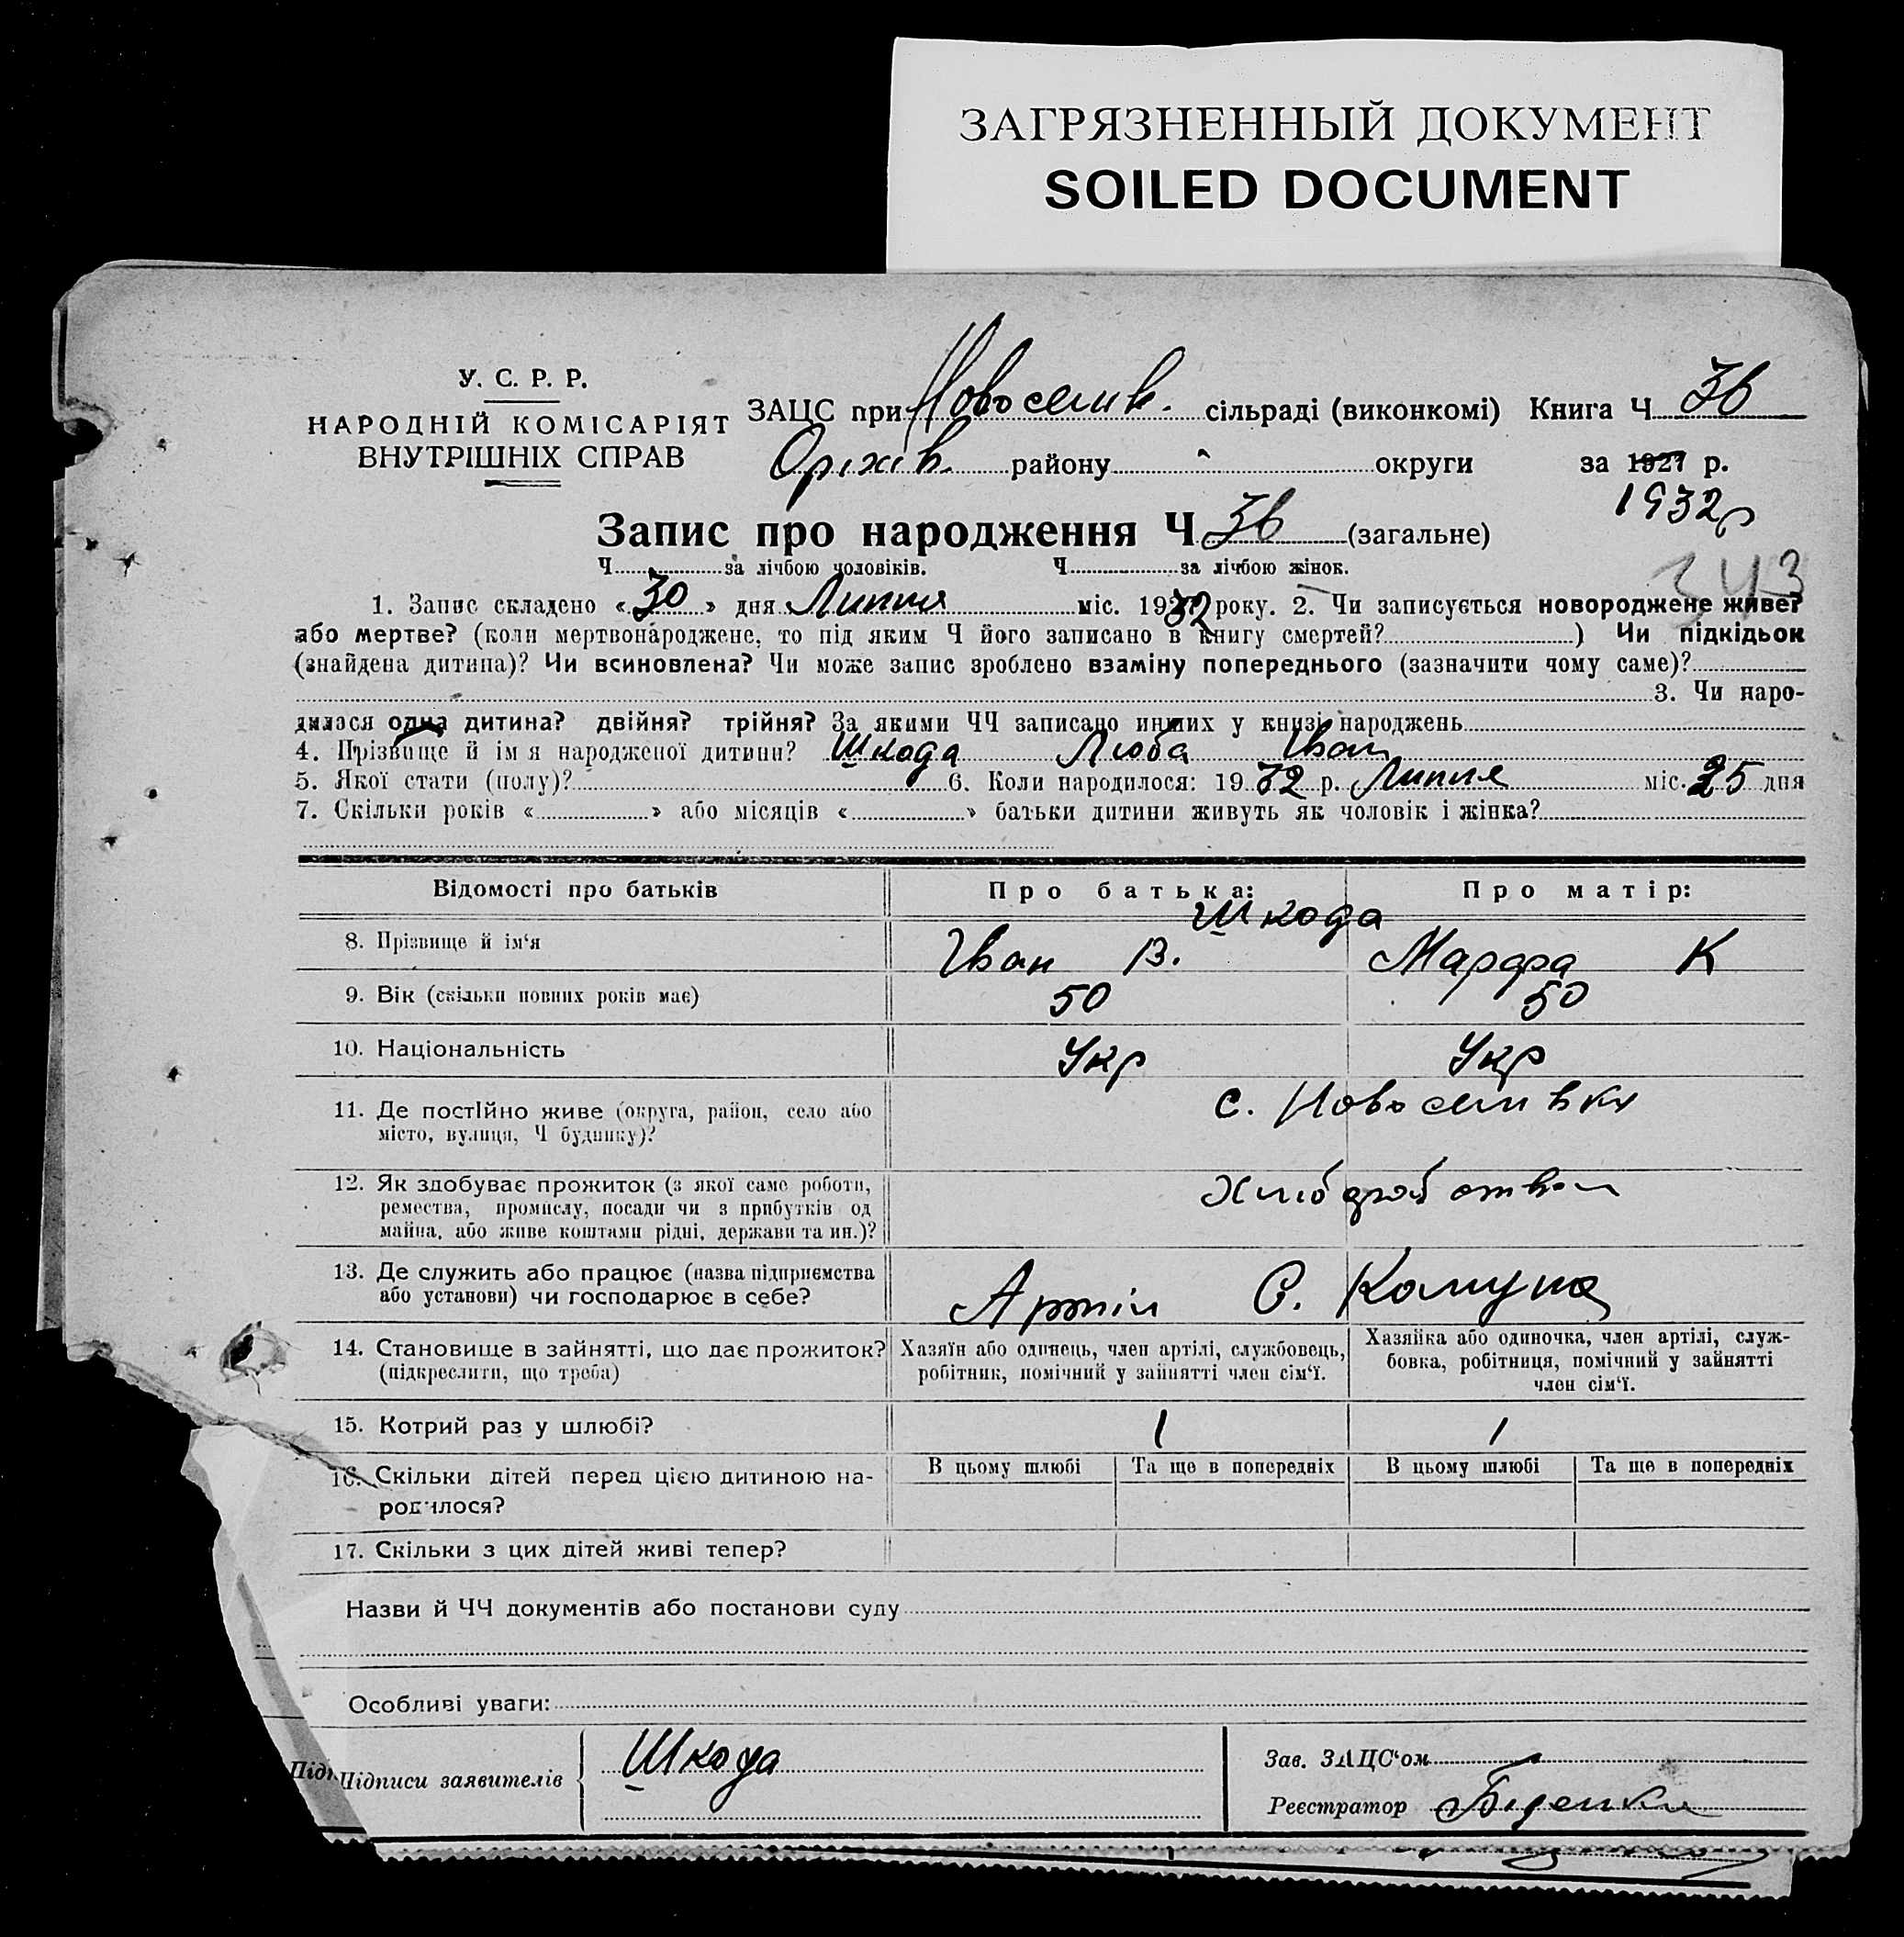 ЗАГРЯЗНЕННЫЙ ДОКУМЕНТ
SOILED DOCUMENT
У. С. Р. Р.
НАРОДНІЙ КОМІСАРІЯТ
ВНУТРІШНІХ СПРАВ
ЗАЦС при Новоселив. сільраді (виконкомі) Книга Ч 36
Оріхів. району округи за 1927 р.
1932р
Запис про народження Ч 36 (загальне)
Ч за лічбою чоловіків. Ч за лічбою жінок.
343
1. Запис складено «30» дня Липня міс. 1932 року. 2. Чи записується новороджене живе?
або мертве? (коли мертвонароджене, то під яким Ч його записано в книгу смертей? ) Чи підкідьок
(знайдена дитина)? Чи всиновлена? Чи може запис зроблено взаміну попереднього (зазначити чому саме)?
3. Чи наро-
дилася одна дитина? двійня? трійня? За якими ЧЧ записано инших у книзі народжень
4. Прізвище й ім я народженої дитини? Шкода Люба Іван
5. Якої стати (полу)? 6. Коли народилося: 1932 р. Липня міс. 25 дня
7. Скільки років « » або місяців « » батьки дитини живуть як чоловік і жінка?
Відомості про батьків Про батька: Про матір:
Шкода
8. Прізвище й ім‘я Іван В. Марфа К
9. Вік (скільки повних років має) 50 50
10. Національність Укр Укр
11. Де постійно живе (округа, район, село або
місто, вулиця, Ч будинку)? с. Новоселивки
12. Як здобуває прожиток (з якої само роботи,
ремества, промислу, посади чи з прибутків од
майна, або живе коштами рідні, держави та ин.)?
13. Де служить або працює (назва підприємства
або установи) чи господарює в себе? Артіл С. Комуна
14. Становище в зайнятті, що дає прожиток?
(підкреслити, що треба)
Хазяїн або одинець, член артілі, службовець,
робітник, помічний у зайнятті член сім‘ї.
Хазяйка або одиночка, член артілі, служ-
бовка, робітниця, помічний у зайнятті
член сім‘ї.
15. Котрий раз у шлюбі? 1 1
16. Скільки дітей перед цією дитиною на-
родилося?
В цьому шлюбі Та ще в попередніх В цьому шлюбі Та ще в попередніх
17. Скільки з цих дітей живі тепер?
Назви й ЧЧ документів або постанови суду
Особливі уваги:
Підписи заявителів Шкода
Зав. ЗАЦС‘ом
Реєстратор